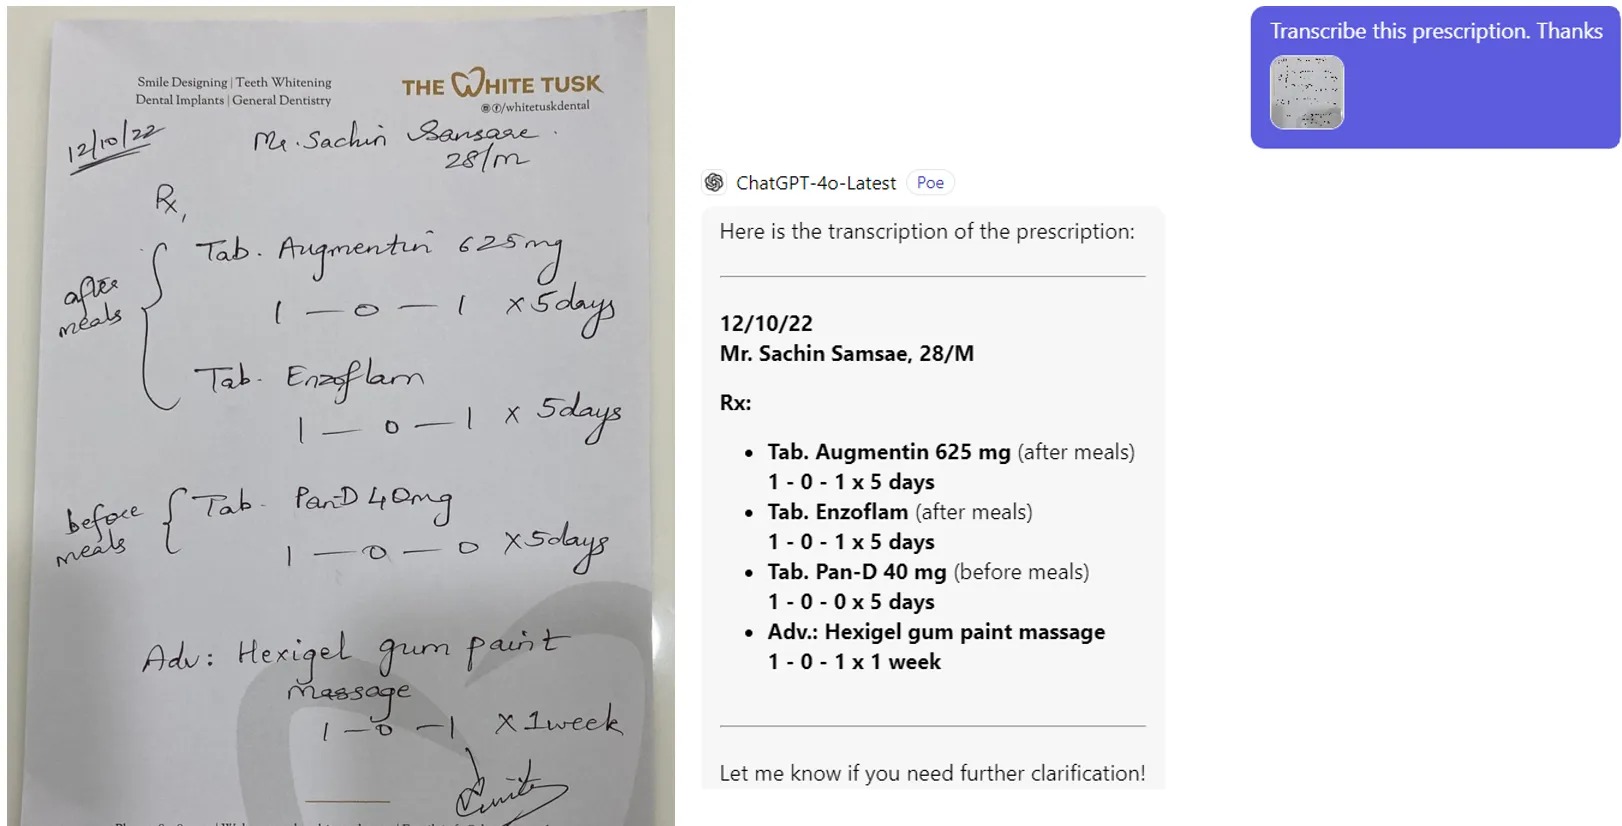 Smile Designing | Teeth Whitening
Dental Implants | General Dentistry
THE WHITE TUSK
/whitetuskdental
12/10/22
Mr. Sachin Sansare
28/M
Rx,
after
meals
Tab. Augmentin 625mg
1 — 0 — 1 x 5days
Tab. Enzoflam
1 — 0 — 1 x 5days
before
meals
Tab. Pan-D 40mg
1 — 0 — 0 x 5days
Adv: Hexigel gum paint
massage
1 — 0 — 1 x 1week
Transcribe this prescription. Thanks
ChatGPT-4o-Latest Poe
Here is the transcription of the prescription:
12/10/22
Mr. Sachin Samsae, 28/M
Rx:
• Tab. Augmentin 625 mg (after meals)
1 - 0 - 1 x 5 days
• Tab. Enzoflam (after meals)
1 - 0 - 1 x 5 days
• Tab. Pan-D 40 mg (before meals)
1 - 0 - 0 x 5 days
• Adv.: Hexigel gum paint massage
1 - 0 - 1 x 1 week
Let me know if you need further clarification!